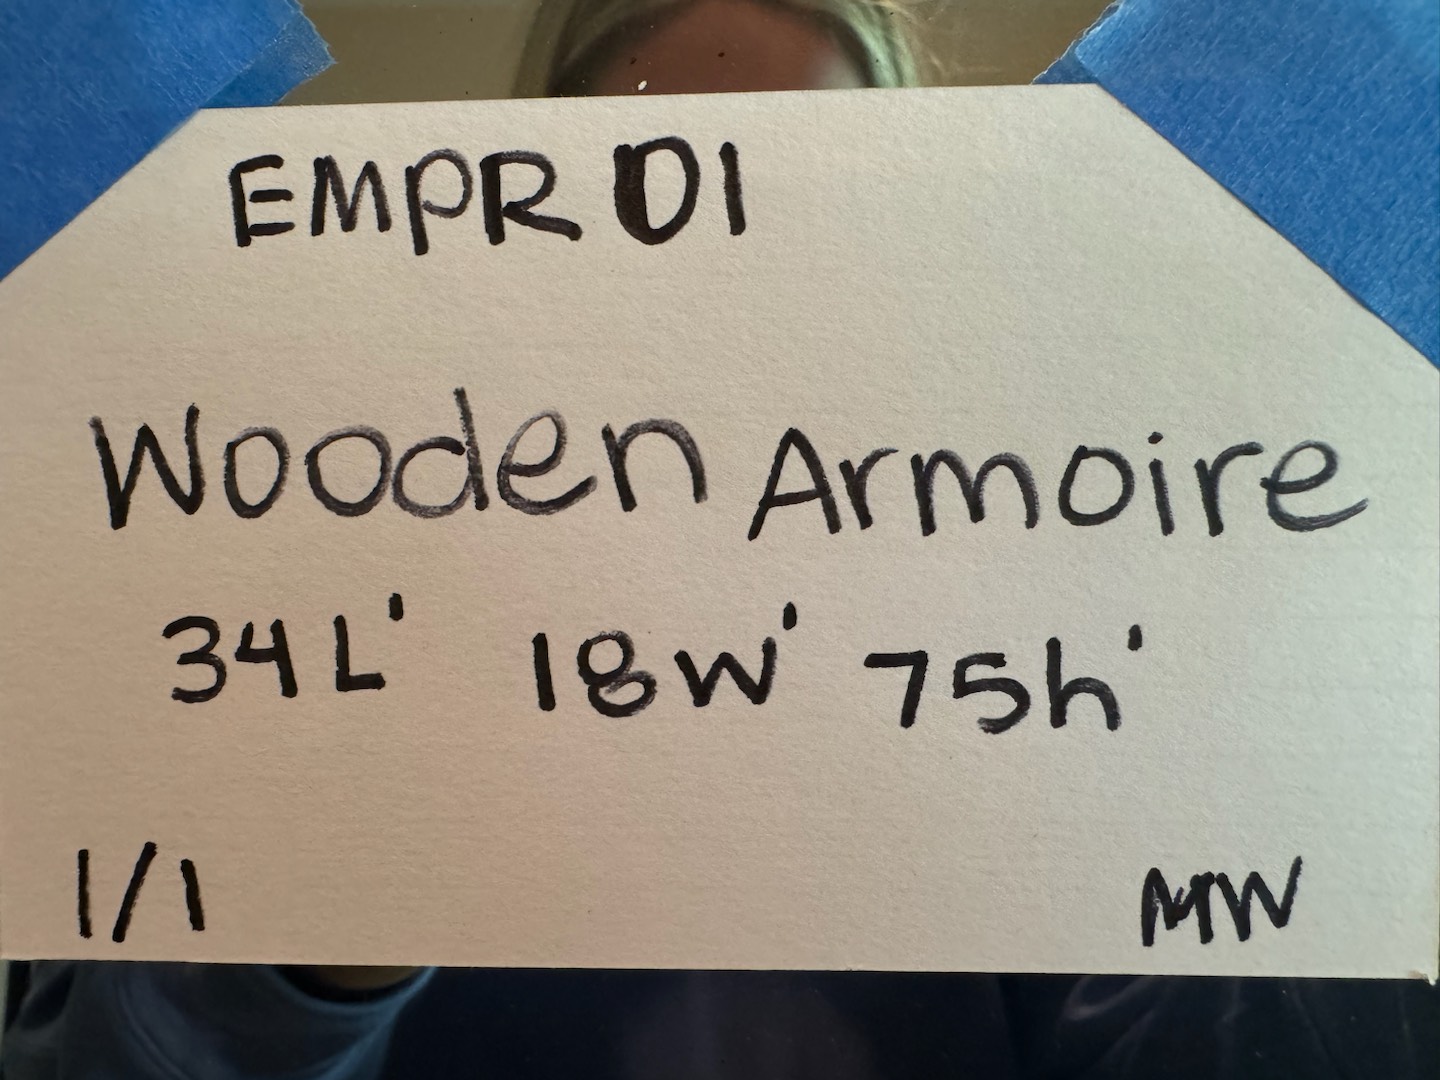 EMPR 01
Wooden Armoire
34L' 18W' 75h'
1/1 MW